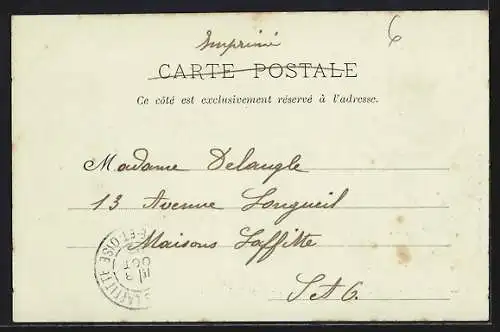 Imprimé
6
CARTE POSTALE
Ce côté est exclusivement réservé à l'adresse.
Madame Delaugle
13 Avenue Longueil
Maisons Laffitte
S et O.
LAFFITTE
ET-OISE
3
OCT